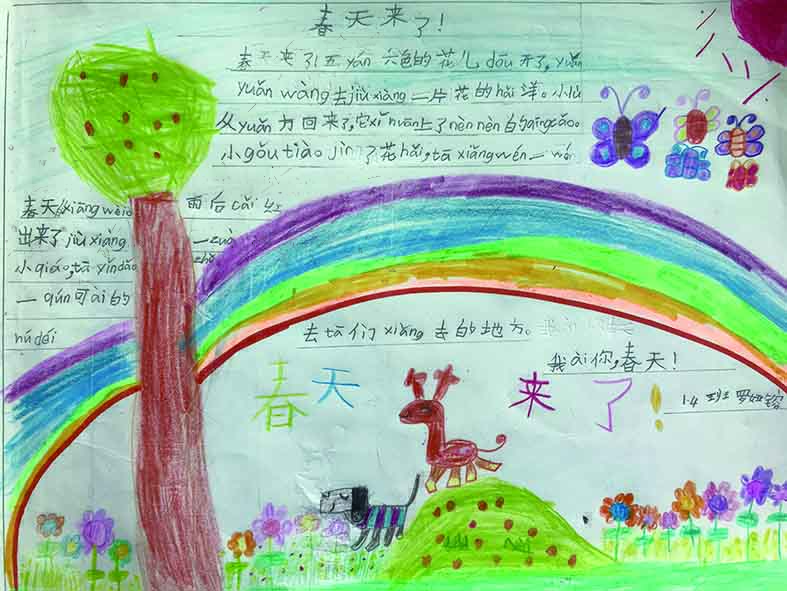 春天来了!
春天来了!五yán六色的花儿dōu开了,yuǎn
yuǎn wàng去jiù xiàng一片花的hǎi洋。小lù
从yuǎn方回来了,它xǐ nuān上了nèn nèn的qīngcǎo。
小gǒu tiào jìn了花hǎi,tā xiǎng wén一wén
春天 xiǎng wèi
雨后cǎi虹
出来了jiù xiàng
一zuò
小qiáo,tā yǐndǎo
一qún可ài的
去tā们xiǎng去的地方。
我ài你,春天!
春天来了!
1.4班 罗